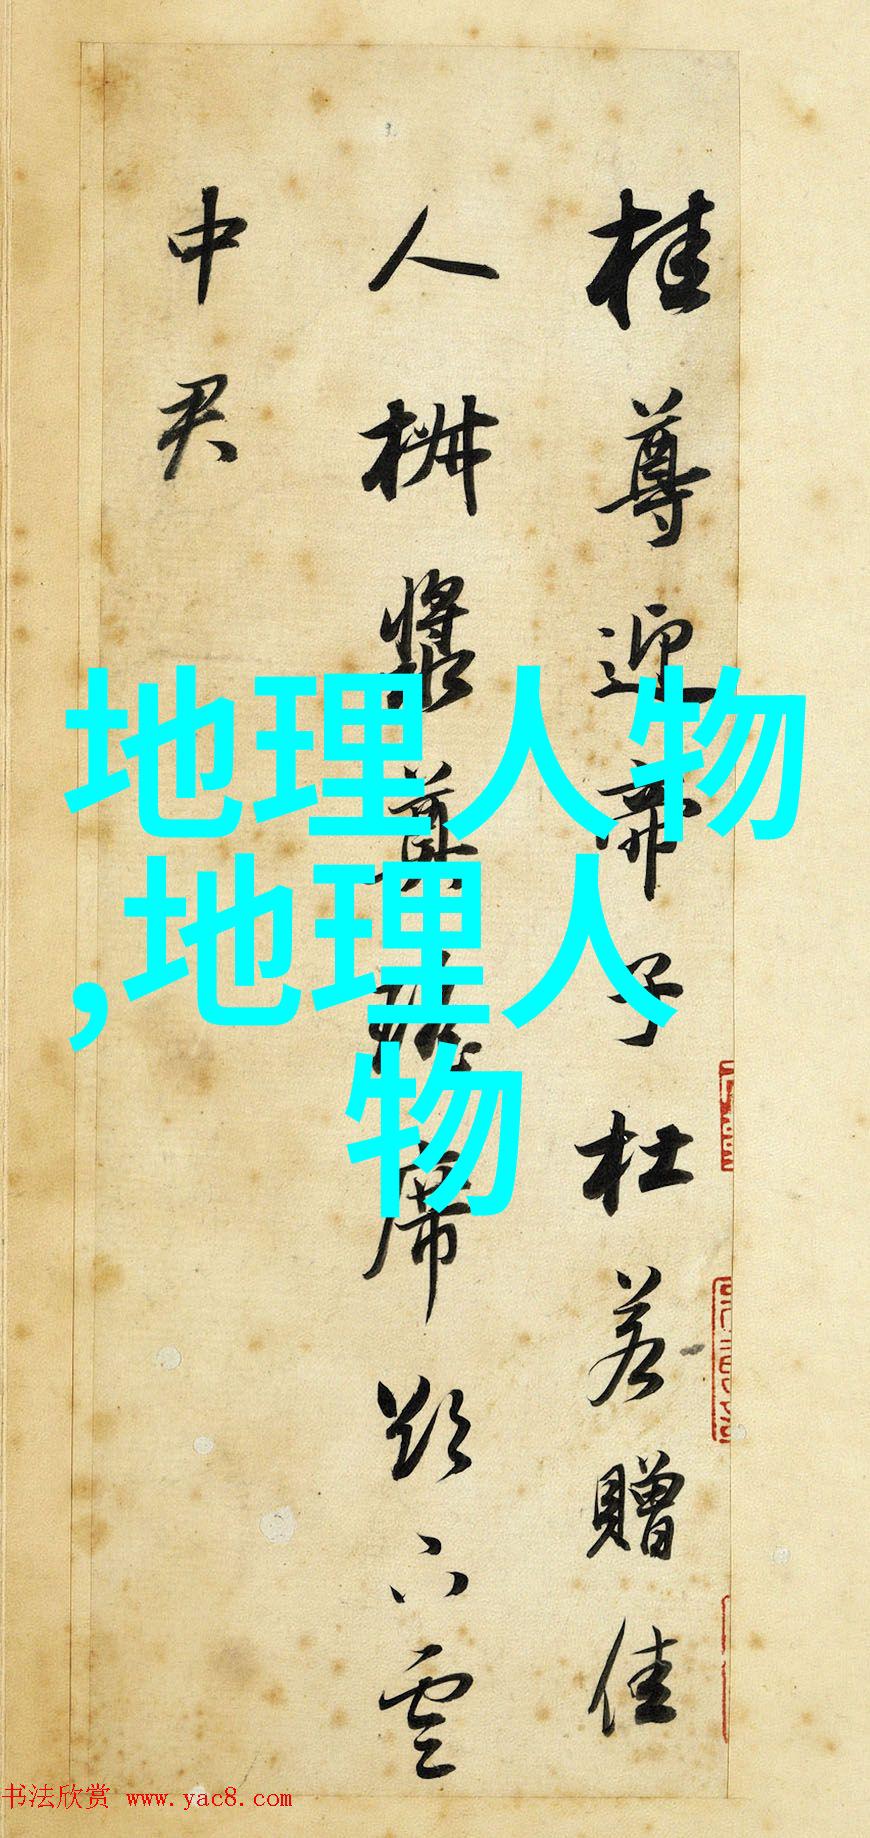 桂尊迎帝子杜若贈佳
人椒漿奠瑤席欲下雲
中君
地理人物
,地理人
物
书法欣赏 www.yac8.com